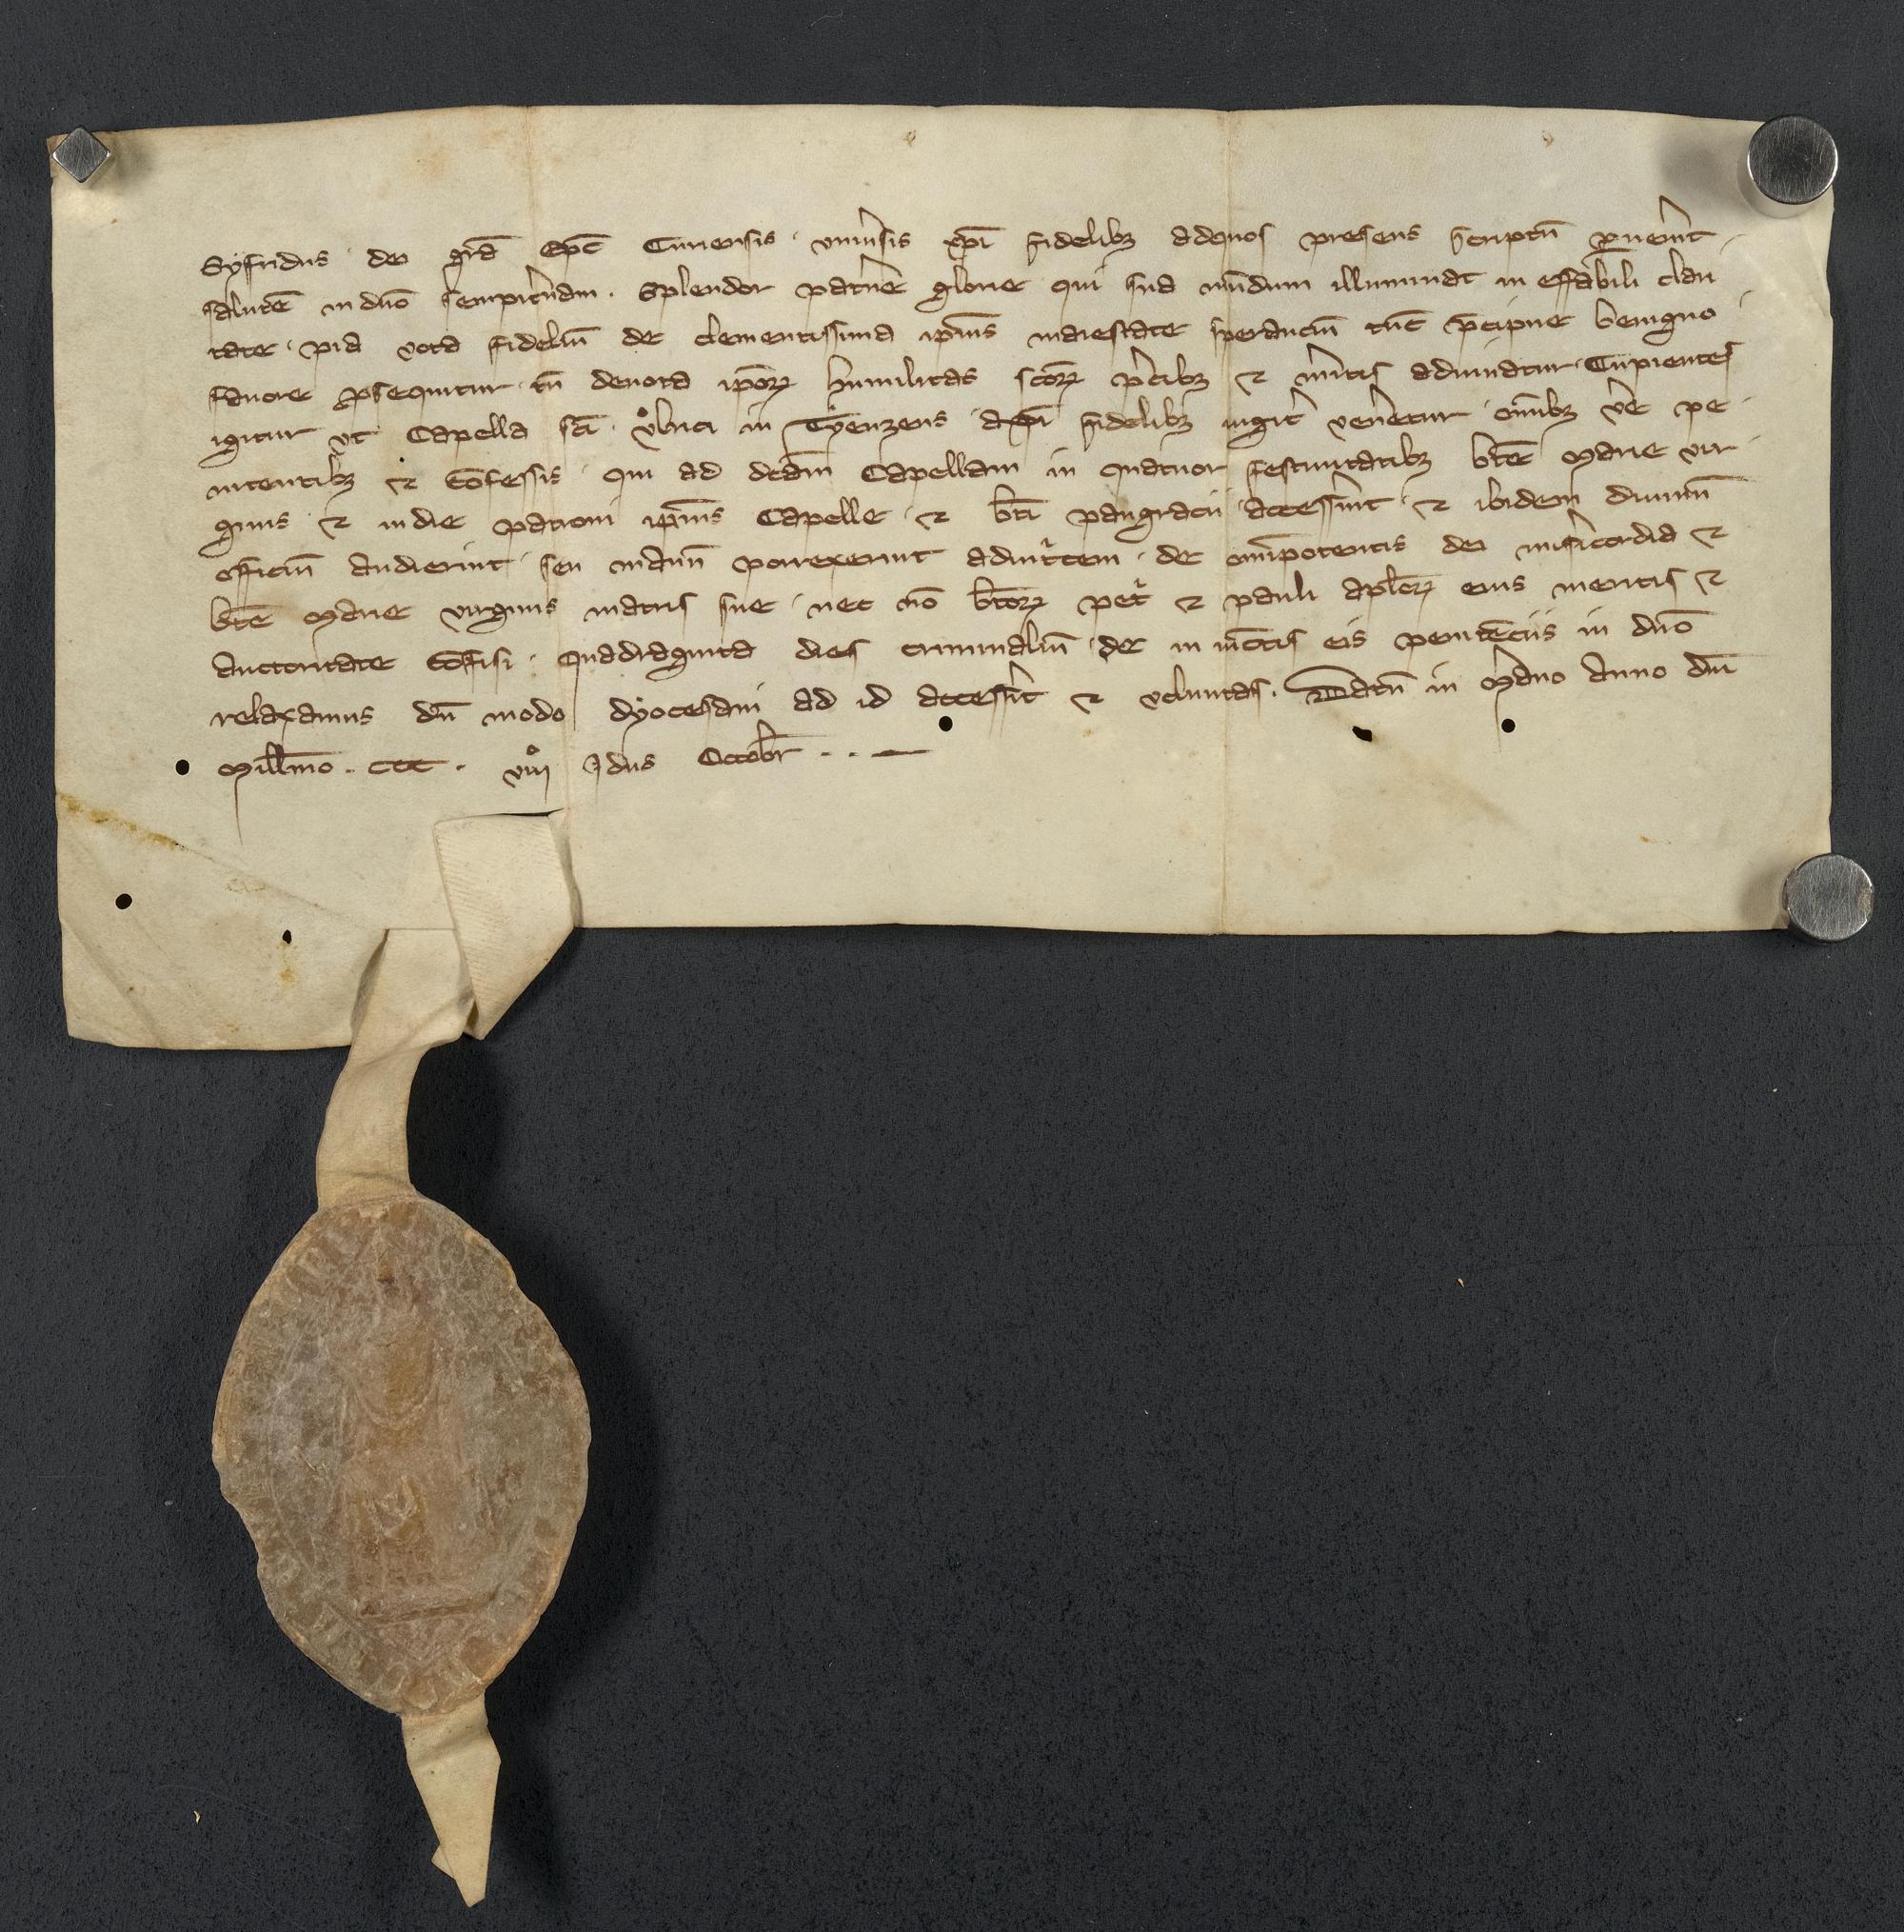 Syfridus · dei gr̄a Ep̄c Curiensis · vniu̾sis xp̄i fidelibꝫ ad quos presens scriptū ꝑuenerı̾t ·
salutē in dn̄o sempit̾nam · Splendor pat̾ne glorie qui sua mūdum illuminat in effabili clari
tate · pia vota fideliū de clementissima ip̄ius maiestate sperantiū tūc p̄cipue benigno
fauore ꝓsequitur · cū deuota ip̄oꝝ humilitas sc̄oꝝ p̾cibꝫ ⁊ mı̾tis adiuuatur · Cupientes
igitur vt Capella sc̄i vͦlrici in Tyͤenzens a xp̄i fidelibꝫ iugit̾ ven̾etur · om̄ibꝫ ve̾ pe
nitentibꝫ ⁊ cōfessis · qui ad dc̄am Capellam in quatuor festiuitatibꝫ bt̄e Marie vir
ginis ⁊ in die patroni ip̄ius Capelle · ⁊ bt̄i pangracii accessı̾nt · ⁊ ibidem diuinū
officiū audierint · seu manū porrexerint adiut̾cem · de om̄ipotentis dei mis̾icordia ⁊
bt̄e Marie virginis matris sue · nec nō bt̄oꝝ pet̾ ⁊ pauli apl̄oꝝ eius meritis ⁊
auctoritate cōfisi · Quadraginta dies criminaliū · de in iūctis eis penitēciis in dn̄o
relaxamus dū modo dyocesani ad id accessı̾t ⁊ voluntas · Datū in Mano Anno dn̄i
Mill̄mo · ccc · viijͦ Idus Octobr̄ · · —